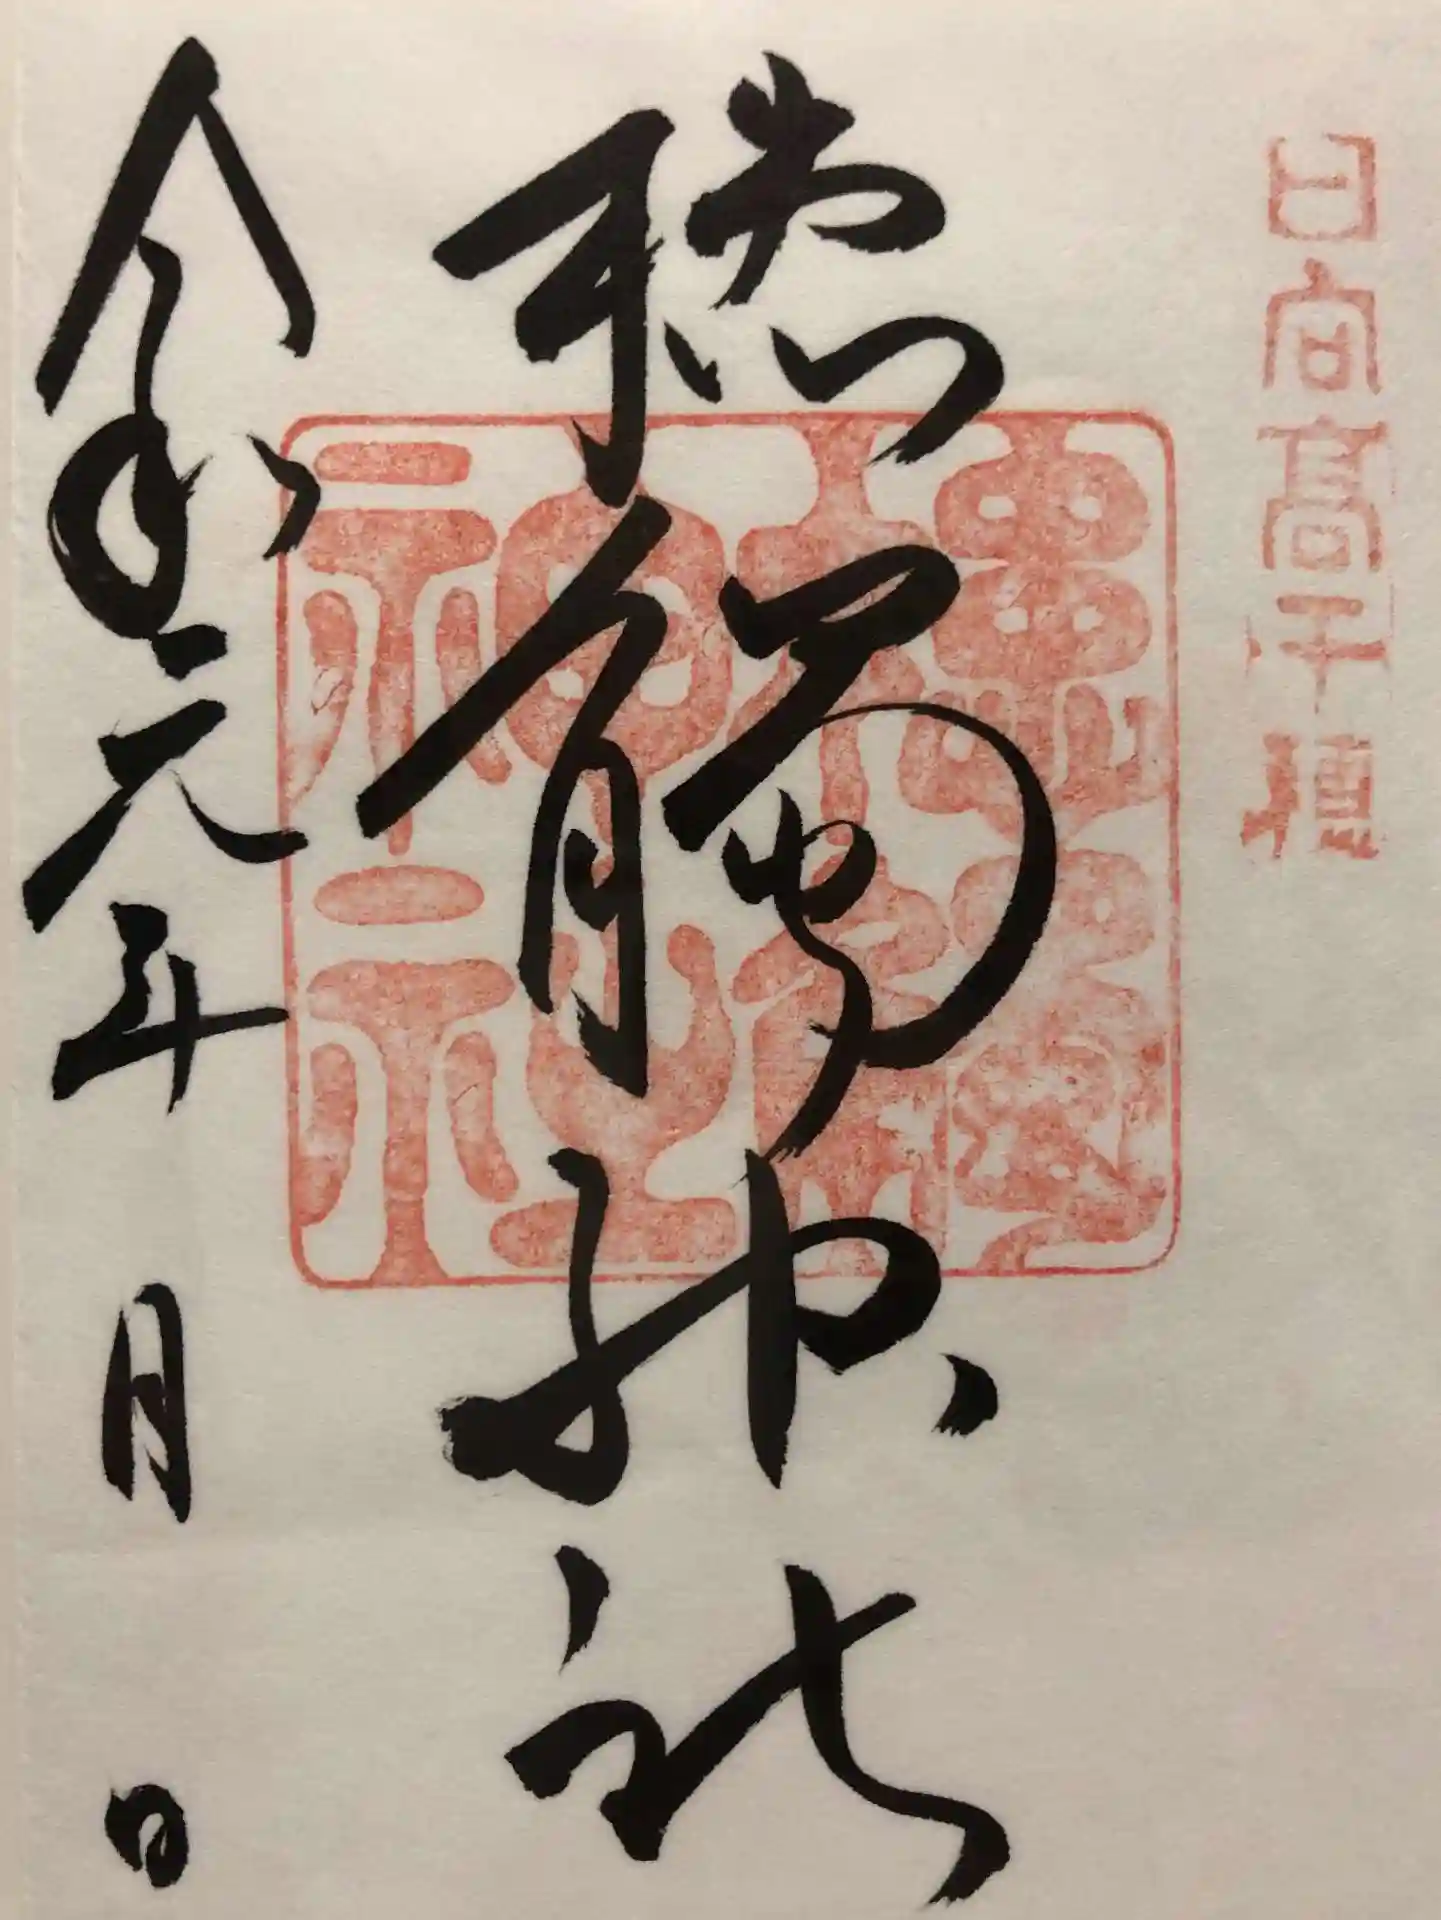 日向髙千穗
槵觸神社
槵觸神社
令和元年 月 日